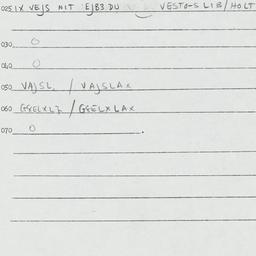 025.1X VEJS NIT EJB3.DU VESTO-S LIB/HOLT
030 O
040 O
050 VAJSL / VAJSLAX
060 GSELXLZ / GSELXLAX
070 O